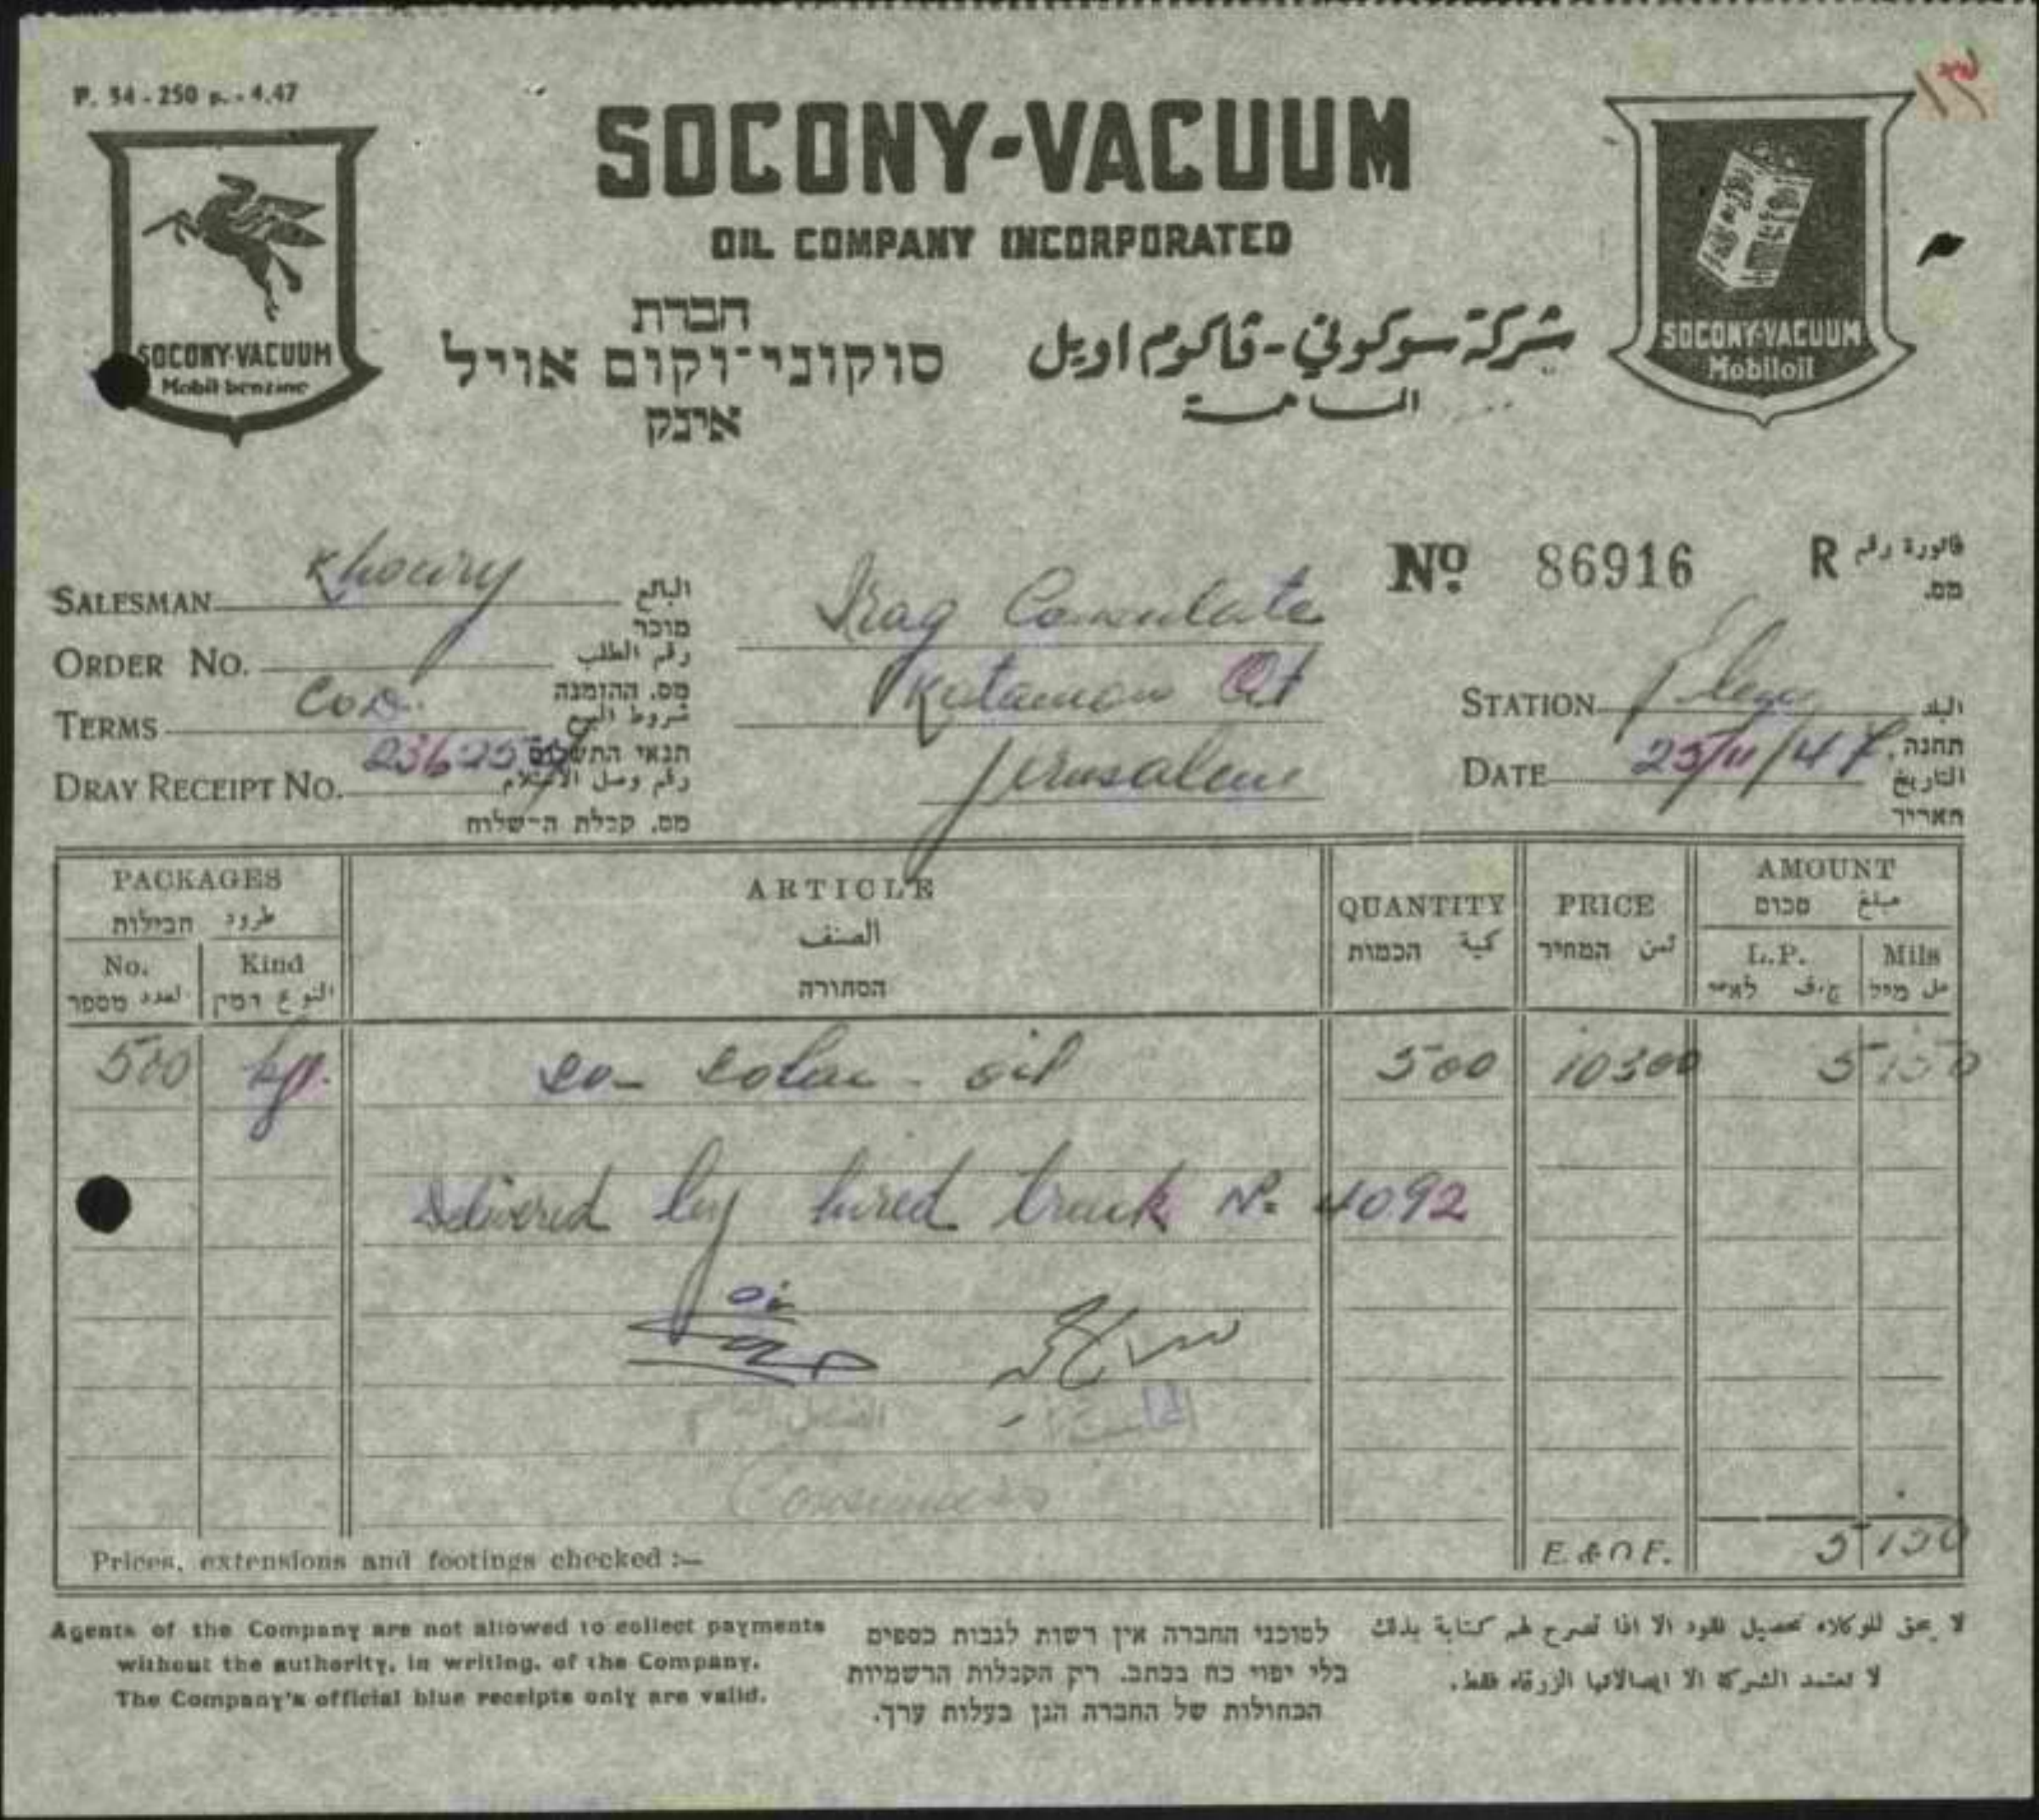 P. 54 - 250 p. - 4.47
SOCONY-VACUUM
OIL COMPANY INCORPORATED
SOCONY-VACUUM
Mobil benzine
SOCONY-VACUUM
Mobiloil
חברת
סוקוני־וקום אויל
אינק
شركة سوكوني-ڤاكوم اويل
No 86916 R فاتورة رقم
מס.
SALESMAN Khoury البائع
מוכר
ORDER No. رقم الطلب
מס. ההזמנה
TERMS COD. شروط البيع
תנאי התשלום
DRAY RECEIPT No. رقم وصل الاستلام
מס. קבלת ה־שלוח
Iraq Consulate
Katamon Qt
Jerusalem
STATION البلد
תחנה
DATE 25/11/47 التاريخ
תאריך
PACKAGES
طرود חבילות
No. Kind
العدد מספר النوع המין
ARTICLE
الصنف
הסחורה
QUANTITY
كمية הכמות
PRICE
ثمن המחיר
AMOUNT
مبلغ סכום
L.P. Mils
ج.ف לא״י مل מיל
500 kg. so- solar - oil 500 10300 5 150
Delivered by hired truck No. 4092
Prices, extensions and footings checked :— E. & O E. 5 150
Agents of the Company are not allowed to collect payments
without the authority, in writing, of the Company.
The Company's official blue receipts only are valid.
לסוכני החברה אין רשות לגבות כספים
בלי יפוי כח בכתב. רק הקבלות הרשמיות
הכחולות של החברה הנן בעלות ערך.
لا يحق للوكلاء تحصيل نقود الا اذا تصرح لهم كتابة بذلك
لا تعتمد الشركة الا ايصالاتها الزرقاء فقط.